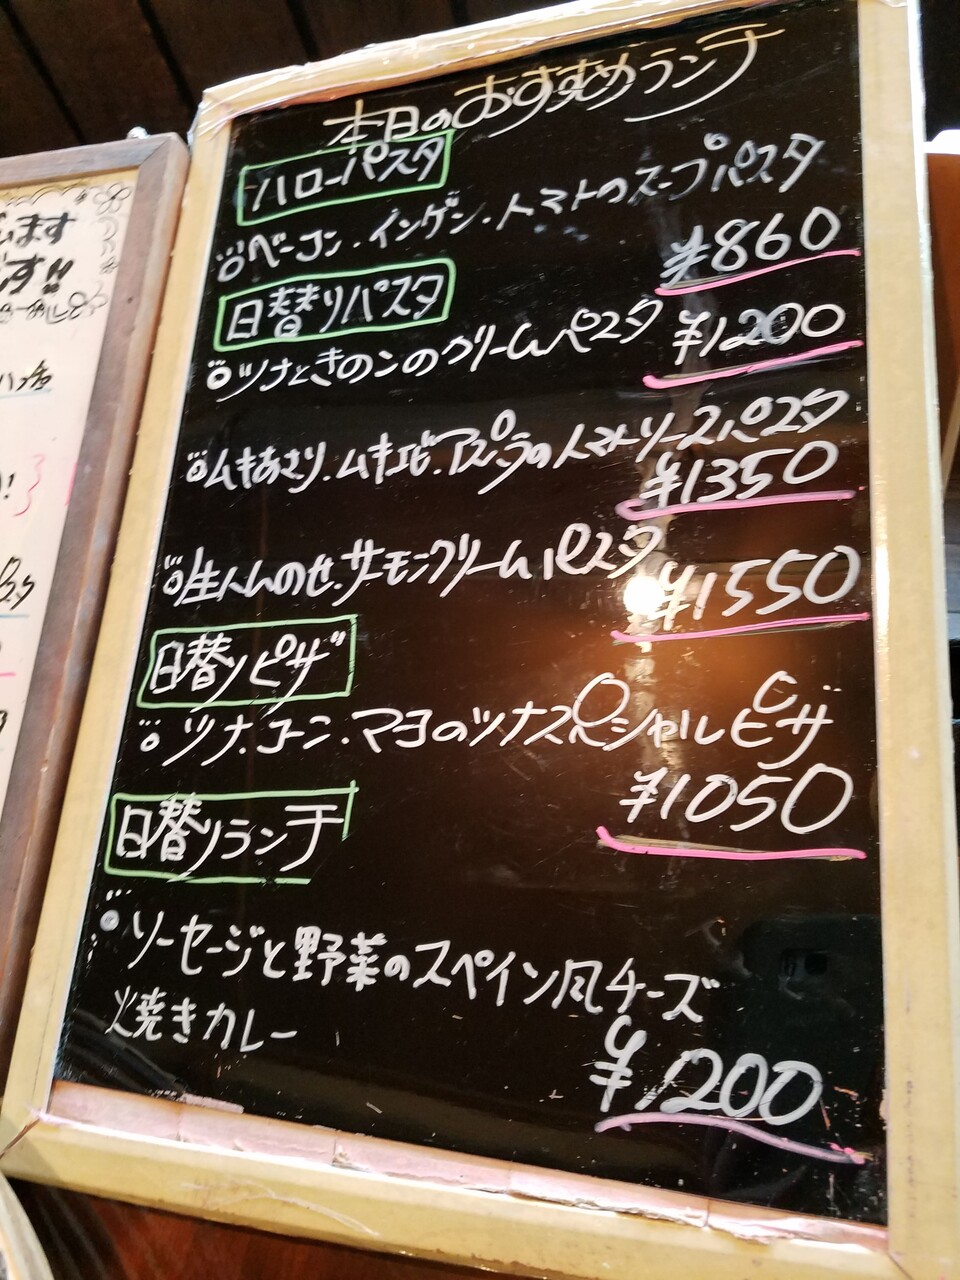 本日のおすすめランチ
ハローパスタ
ベーコン・インゲン・トマトのスープパスタ
¥860
日替りパスタ
ツナときのコのクリームパスタ ¥1200
ムキあさり、ムキエビ、アスパラのトマトソースパスタ
¥1350
生ハムのせ、サーモンクリームパスタ
¥1550
日替りピザ
ツナ、コーン、マヨのツナスペシャルピザ
¥1050
日替りランチ
ソーセージと野菜のスペイン風チーズ
焼きカレー
¥1200
います
です!!